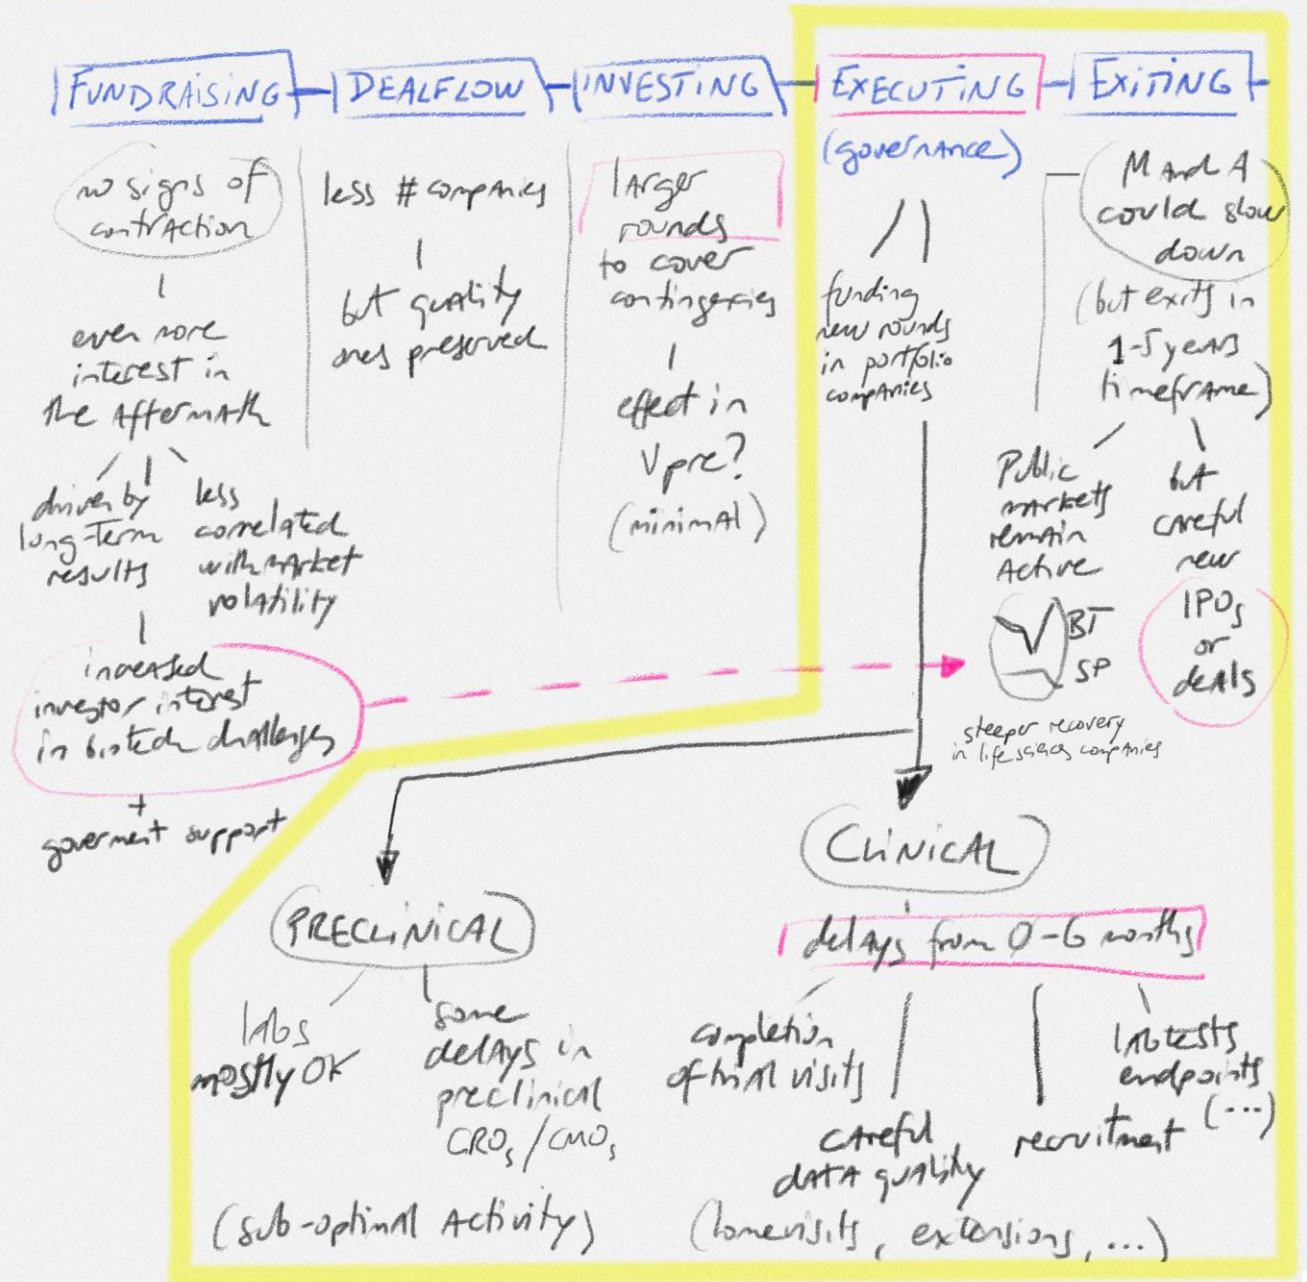 FUNDRAISING
DEALFLOW
INVESTING
EXECUTING
EXITING
no signs of
contraction
even more
interest in
the aftermath
driven by
long-term
results
less
correlated
with market
volatility
increased
investor interest
in biotech challenges
+
goverment support
less # companies
but quality
ones preserved
larger
rounds
to cover
contingencies
effect in
Vpre?
(minimal)
(governance)
funding
new rounds
in portfolio
companies
M and A
could slow
down
(but exits in
1-5 years
timeframe)
Public
markets
remain
active
BT
SP
steeper recovery
in life sciences companies
but
careful
new
IPOs
or
deals
PRECLINICAL
labs
mostly OK
some
delays in
preclinical
CROs/CMOs
(sub-optimal activity)
CLINICAL
delays from 0-6 months
completion
of trial visits
careful
data quality
recruitment
lab tests
endpoints
(...)
(homevisits, extensions, ...)